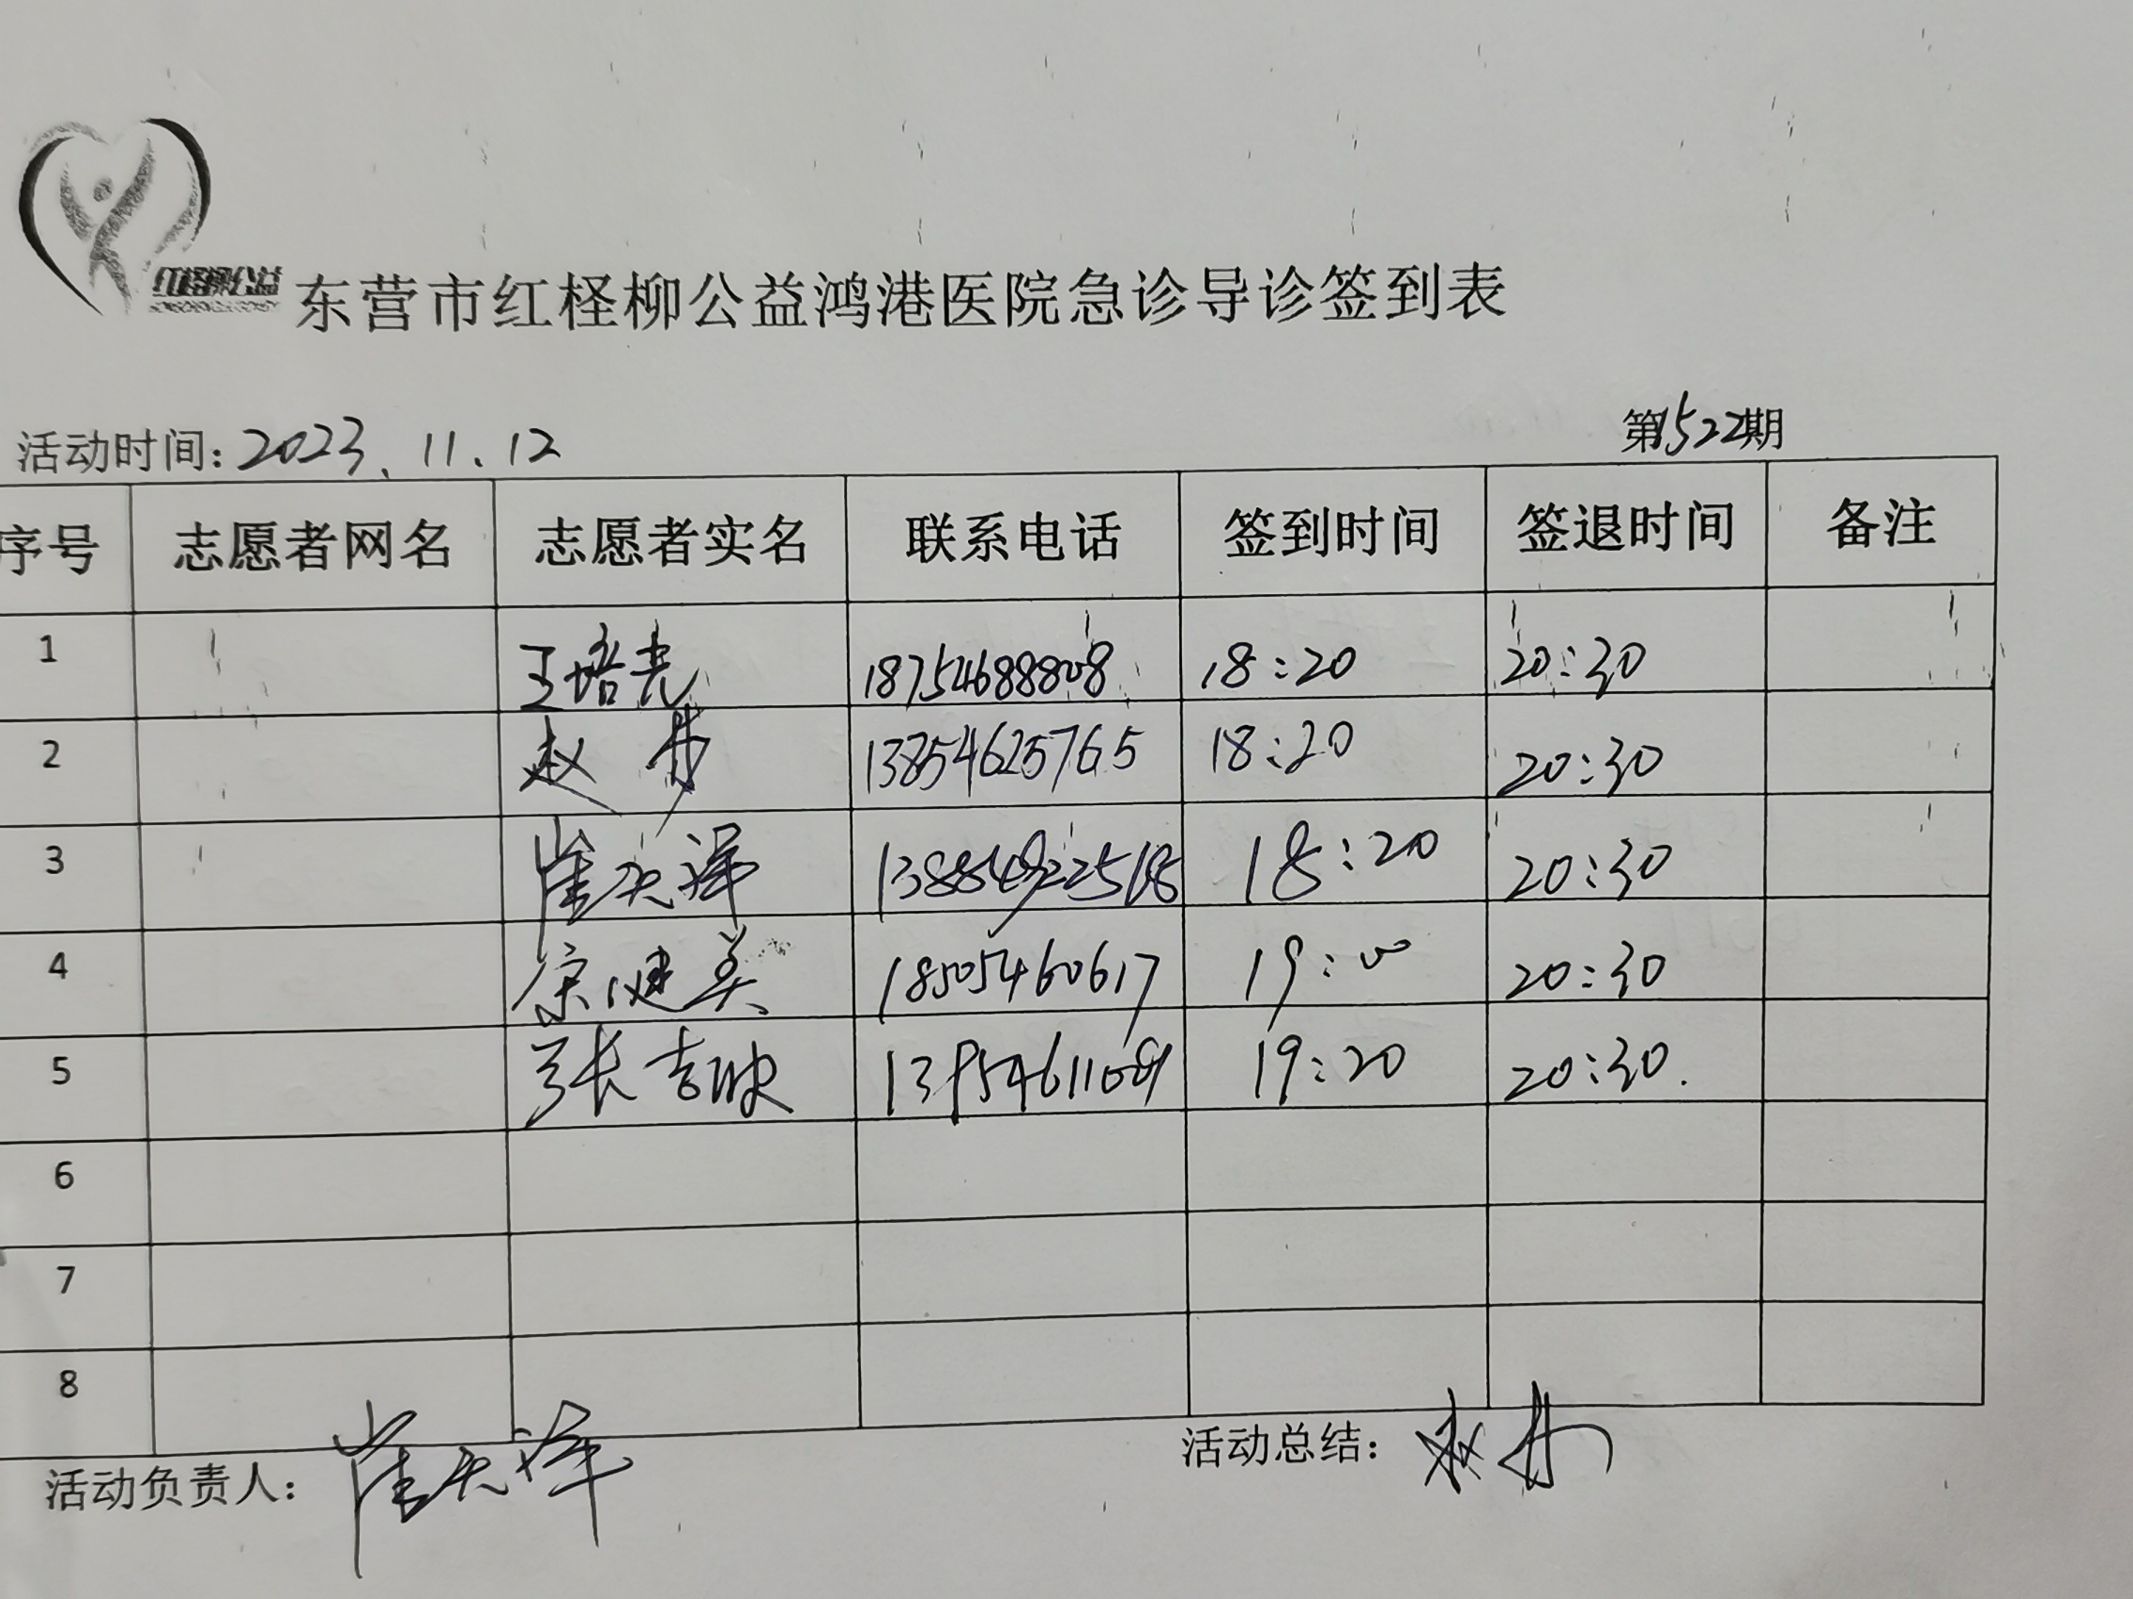 红柽柳公益
东营市红柽柳公益鸿港医院急诊导诊签到表
活动时间：2023.11.12 第1522期
序号 志愿者网名 志愿者实名 联系电话 签到时间 签退时间 备注
1 王培尧 18754688808 18:20 20:30
2 赵丹 13854625765 18:20 20:30
3 崔天泽 18:20 20:30
4 宗健美 18505460617 19:00 20:30
5 张吉 19:20 20:30.
6
7
8
活动负责人：崔天泽 活动总结：赵丹